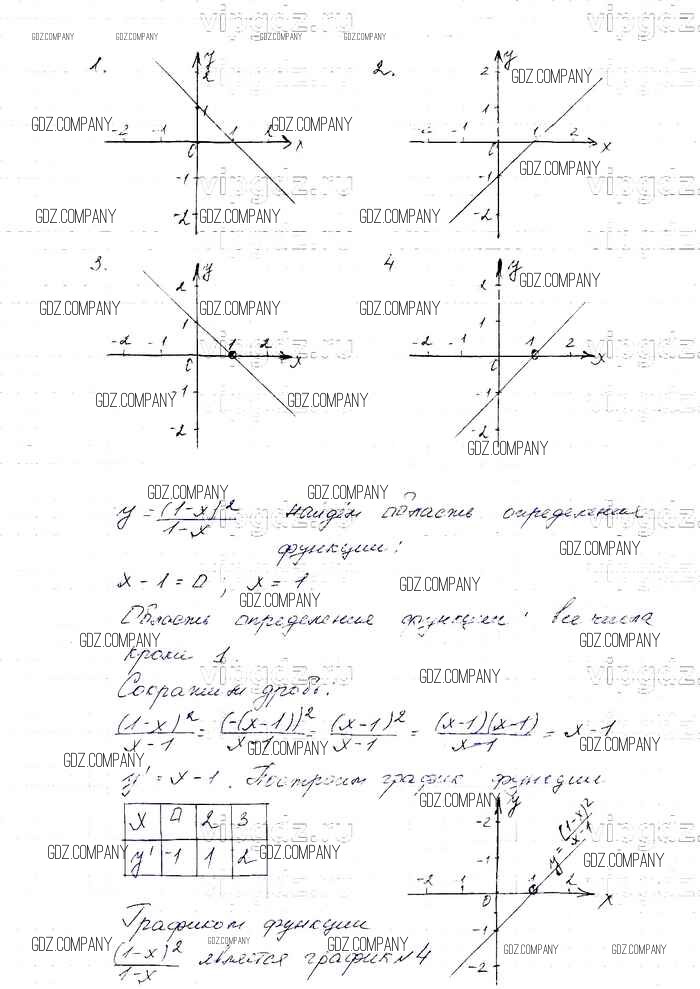 vipgdz.ru
GDZ.COMPANY GDZ.COMPANY GDZ.COMPANY GDZ.COMPANY
1. y 2. y
2 2 GDZ.COMPANY
1 1
GDZ.COMPANY GDZ.COMPANY
-2 -1 0 1 2 x -2 -1 0 1 2 x
GDZ.COMPANY
-1 -1
vipgdz.ru vipgdz.ru
GDZ.COMPANY GDZ.COMPANY GDZ.COMPANY GDZ.COMPANY
-2 -2
3. y 4 y
2 2 GDZ.COMPANY
GDZ.COMPANY GDZ.COMPANY GDZ.COMPANY
1 1
vipgdz.ru vipgdz.ru
-2 -1 0 1 2 x -2 -1 0 1 2 x
1 -1
GDZ.COMPANY GDZ.COMPANY GDZ.COMPANY
-2 -2
GDZ.COMPANY
GDZ.COMPANY GDZ.COMPANY
y = (1-x)^2 / 1-x найдём область определения
vipgdz.ru vipgdz.ru
функции:
GDZ.COMPANY
x - 1 = 0 ; x = 1
GDZ.COMPANY
GDZ.COMPANY
Область определения функции: все числа
GDZ.COMPANY GDZ.COMPANY
кроме 1.
vipgdz.ru vipgdz.ru
GDZ.COMPANY
Сократим дробь:
(1-x)^2 / x-1 = (-(x-1))^2 / x-1 = (x-1)^2 / x-1 = (x-1)(x-1) / x-1 = x-1
GDZ.COMPANY GDZ.COMPANY
GDZ.COMPANY
y' = x-1. Построим график функции
GDZ.COMPANY
x 0 2 3
y' -1 1 2
vipgdz.ru vipgdz.ru
GDZ.COMPANY GDZ.COMPANY GDZ.COMPANY
y
-2
-1
y = (1-x)^2 / x-1
-2 -1 0 1 2 x
-1
-2
Графиком функции
(1-x)^2 / 1-x является график №4
GDZ.COMPANY GDZ.COMPANY GDZ.COMPANY GDZ.COMPANY GDZ.COMPANY